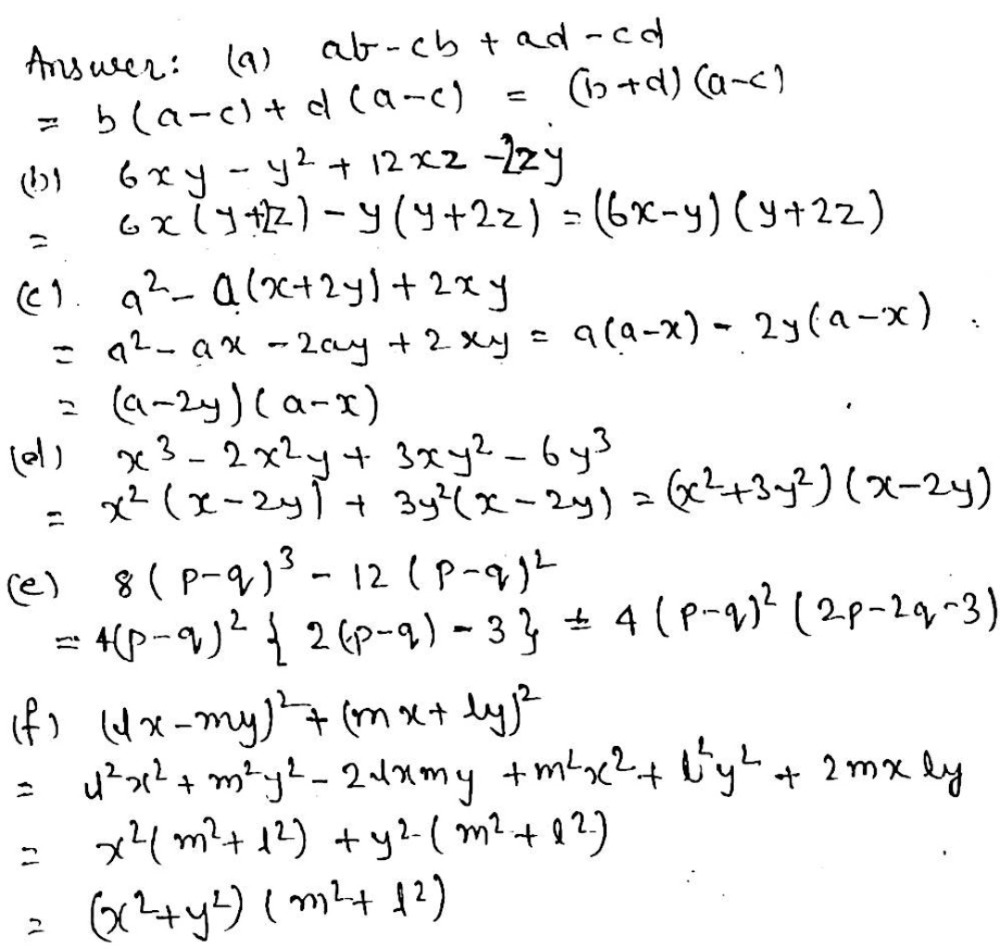 Answer: (a) ab - cb + ad - cd
= b(a-c) + d(a-c) = (b+d)(a-c)
(b) 6xy - y² + 12xz - 2zy
= 6x(y+2z) - y(y+2z) = (6x-y)(y+2z)
(c). a² - a(x+2y) + 2xy
= a² - ax - 2ay + 2xy = a(a-x) - 2y(a-x)
= (a-2y)(a-x)
(d) x³ - 2x²y + 3xy² - 6y³
= x²(x-2y) + 3y²(x-2y) = (x²+3y²)(x-2y)
(e) 8(p-q)³ - 12(p-q)²
= 4(p-q)² { 2(p-q) - 3 } = 4(p-q)² (2p-2q-3)
(f) (lx-my)² + (mx+ly)²
= l²x² + m²y² - 2lxmy + m²x² + l²y² + 2mxly
= x²(m²+l²) + y²(m²+l²)
= (x²+y²)(m²+l²)